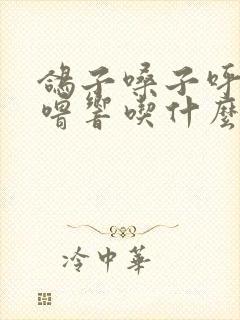 鴿子嗓子呼
嚕響喫什麼
冷中華